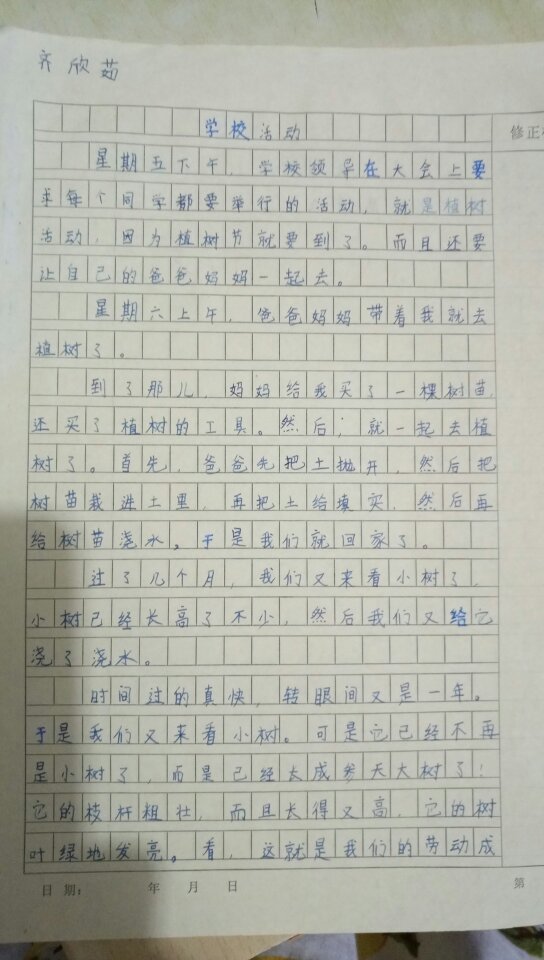 齐欣茹
学校活动
修正
星期五下午，学校领导在大会上要
求每个同学都要举行的活动，就是植树
活动，因为植树节就要到了。而且还要
让自己的爸爸妈妈一起去。
星期六上午，爸爸妈妈带着我就去
植树了。
到了那儿，妈妈给我买了一棵树苗，
还买了植树的工具。然后，就一起去植
树了。首先，爸爸先把土抛开，然后把
树苗栽进土里，再把土给填实，然后再
给树苗浇水。于是我们就回家了。
过了几个月，我们又来看小树了，
小树已经长高了不少，然后我们又给它
浇了浇水。
时间过的真快，转眼间又是一年。
于是我们又来看小树。可是它已经不再
是小树了，而是已经长成参天大树了！
它的枝杆粗壮，而且长得又高，它的树
叶绿地发亮。看，这就是我们的劳动成
日期： 年 月 日 第